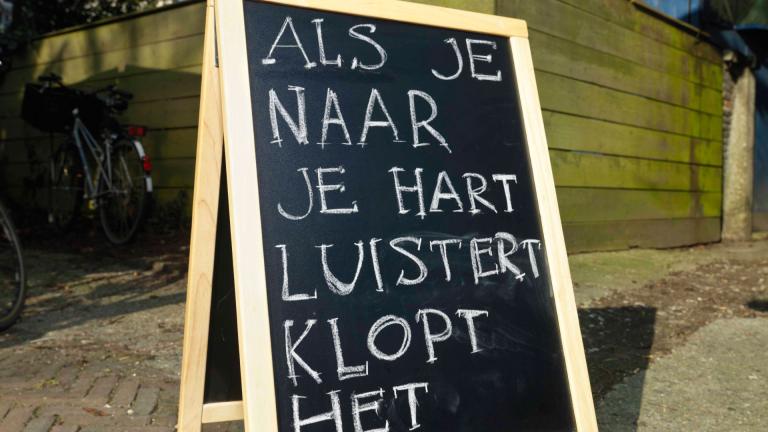 ALS JE
NAAR
JE HART
LUISTERT
KLOPT
HET